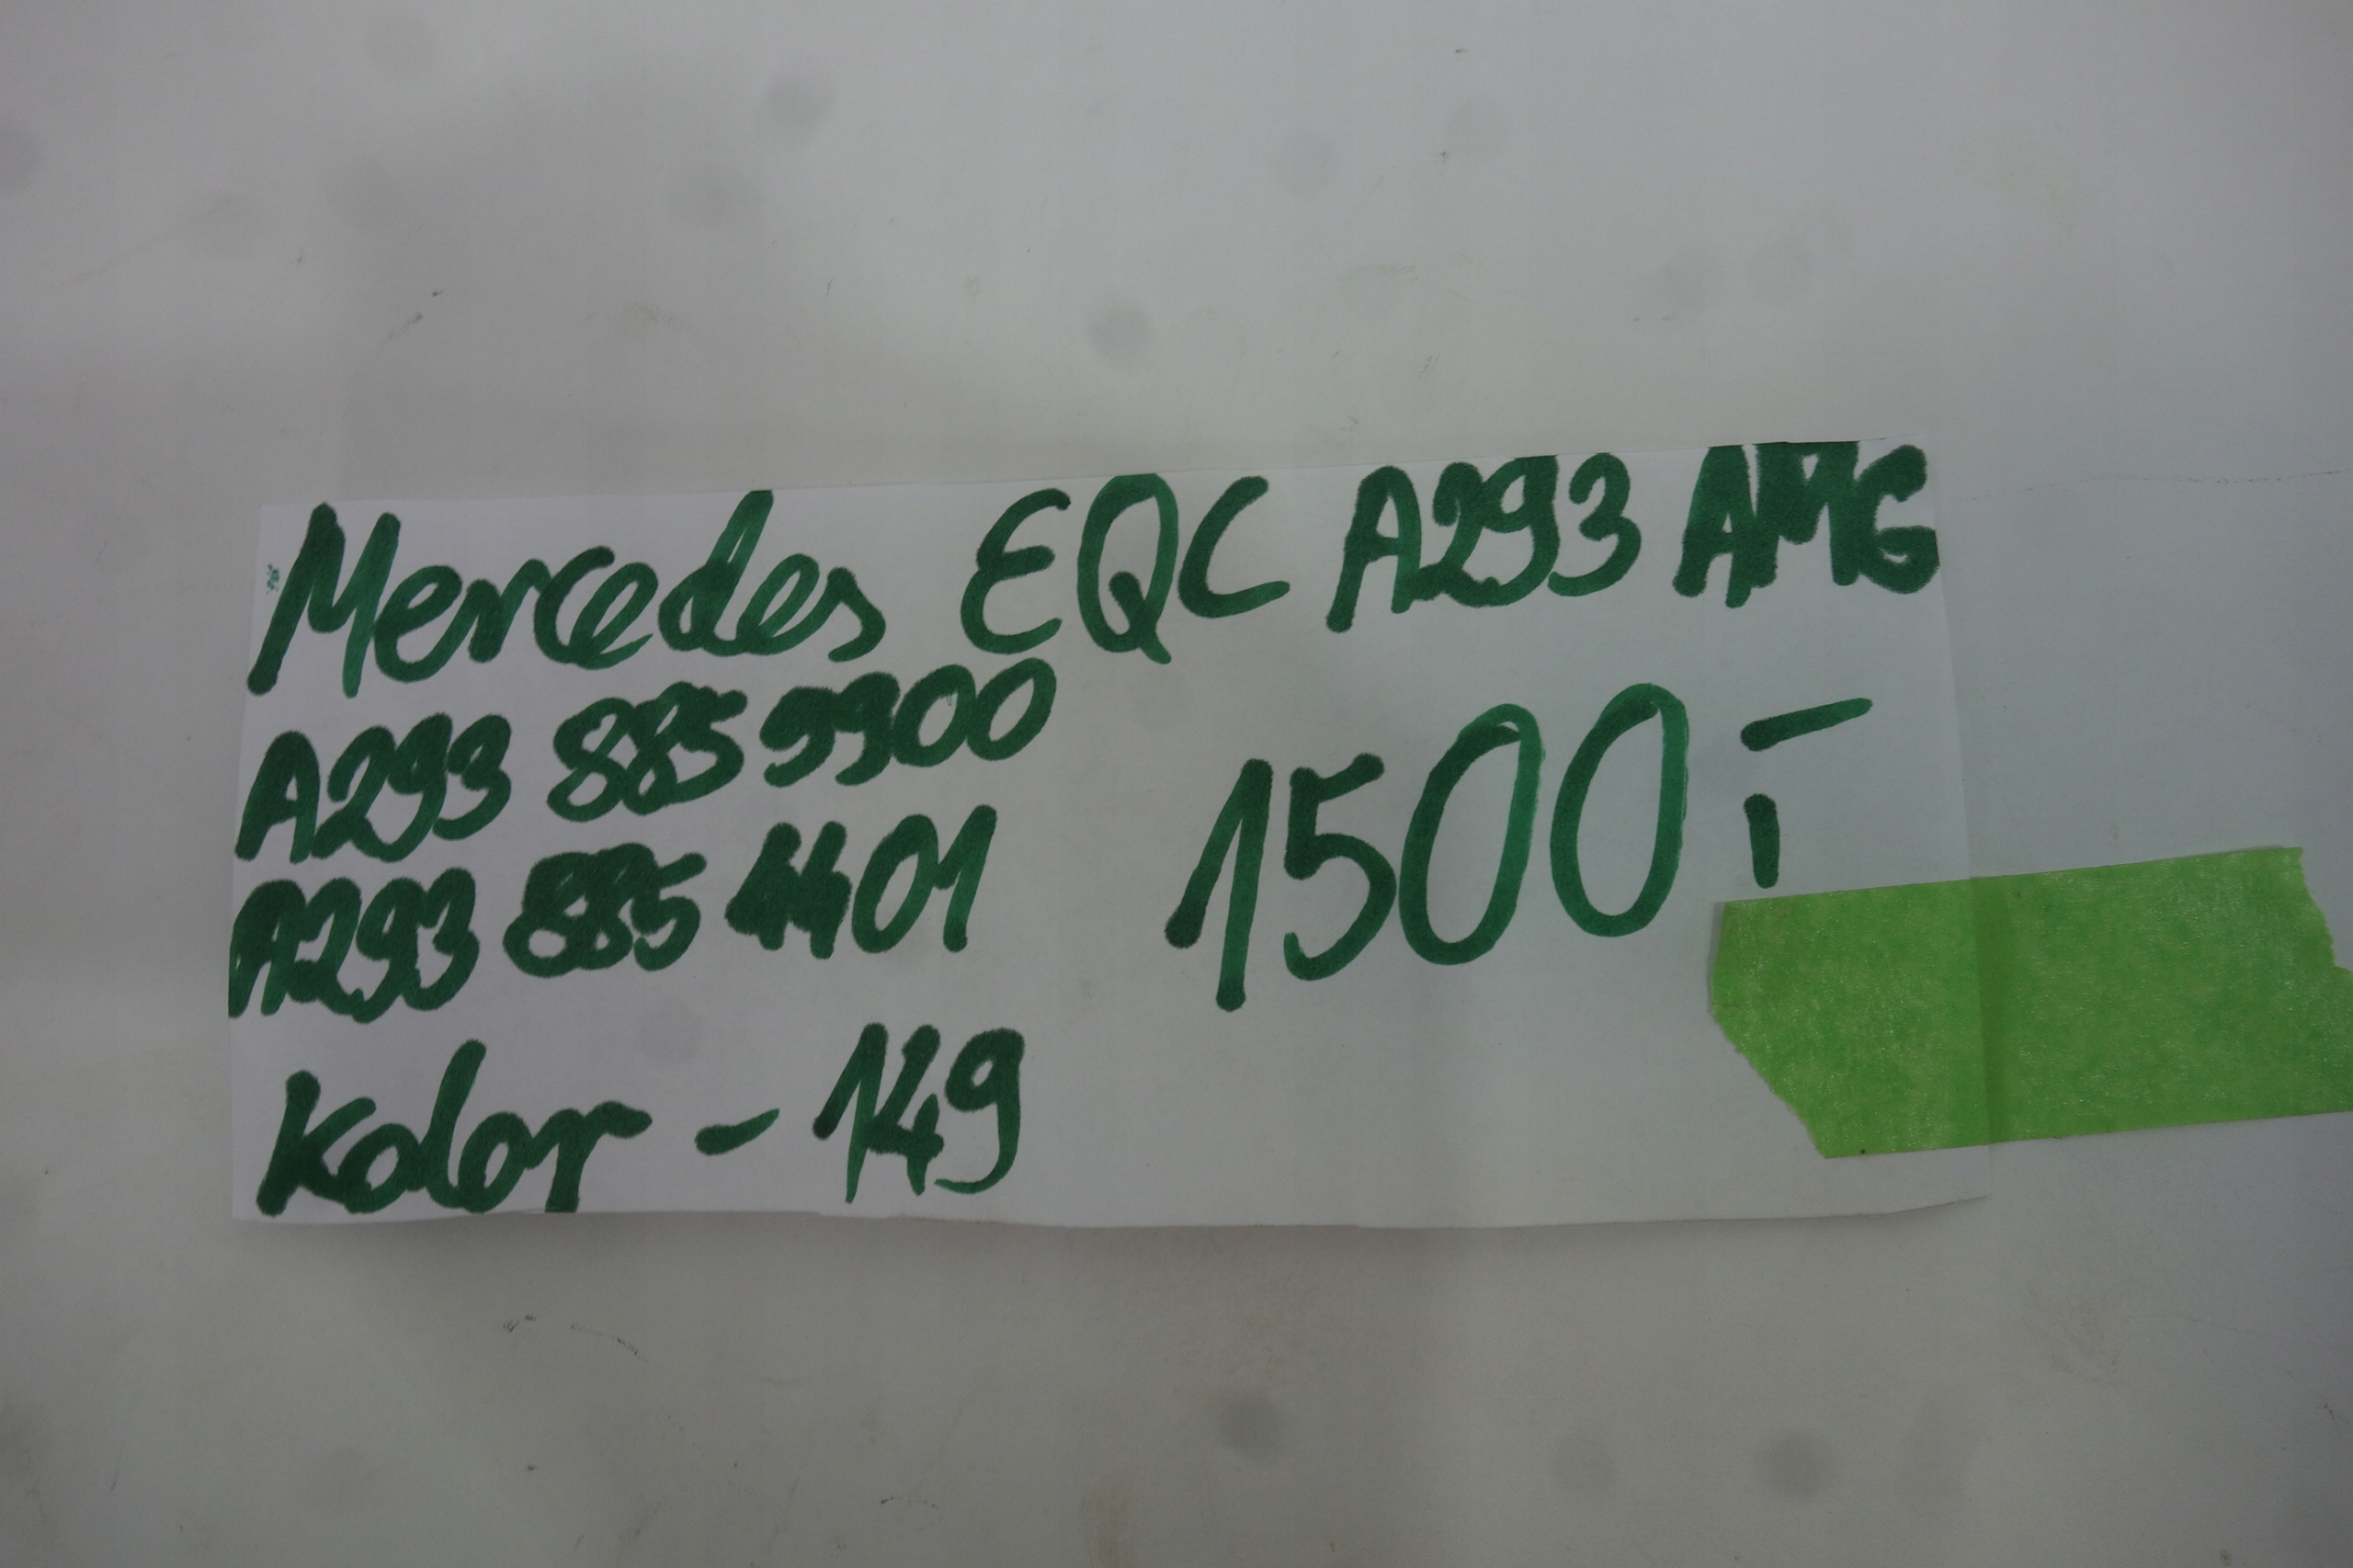 Mercedes EQC A293 AMG
A293 885 9900
A293 885 4401
1500,-
Kolor - 149